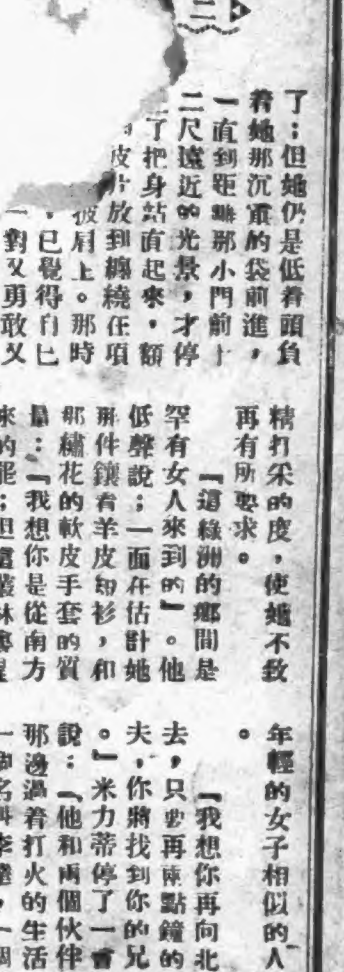 二
了；但她仍是低着頭負
着她那沉重的袋前進，
一直到距離那小門前十
二尺遠近的光景，才停
了把身站直起來，額
皮片放到纏繞在項
披肩上。那時
，已覺得自己
一對又勇敢又
精打采的度，使她不致
再有所要求。
『這綠洲的鄉間是
罕有女人來到的』。他
低聲說；一面在估計她
那件鑲着羊皮的衫，和
那繡花的軟皮手套的質
量：『我想你是從南方
來的罷；但這叢林裏
年輕的女子相似的人
。
『我想你再向北
去，只要再兩點鐘的
夫，你將找到你的兄
。』米力蒂停了一會
說：『他和兩個伙伴
那邊過着打火的生活
一個名叫李達，一個